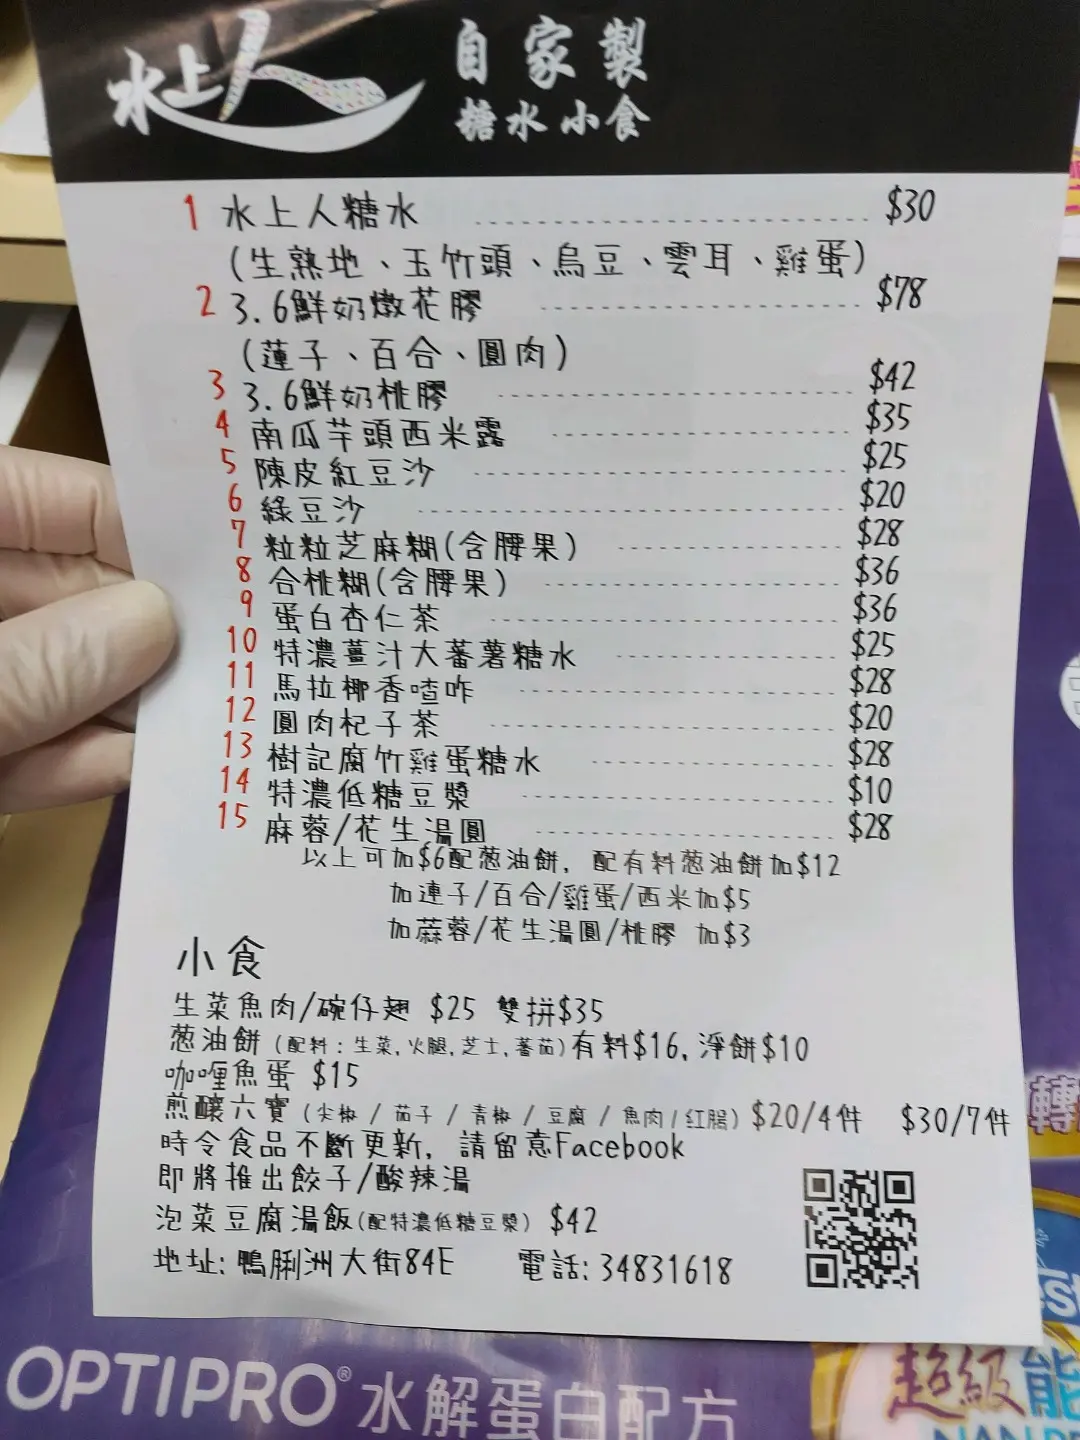 水上人 自家製
糖水小食
1 水上人糖水 $30
(生熟地、玉竹頭、烏豆、雲耳、雞蛋)
2 3.6鮮奶燉花膠 $78
(蓮子、百合、圓肉)
3 3.6鮮奶桃膠 $42
4 南瓜芋頭西米露 $35
5 陳皮紅豆沙 $25
6 綠豆沙 $20
7 粒粒芝麻糊(含腰果) $28
8 合桃糊(含腰果) $36
9 蛋白杏仁茶 $36
10 特濃薑汁大蕃薯糖水 $25
11 馬拉椰香喳咋 $28
12 圓肉杞子茶 $20
13 樹記腐竹雞蛋糖水 $28
14 特濃低糖豆漿 $10
15 麻蓉/花生湯圓 $28
以上可加$6配葱油餅, 配有料葱油餅加$12
加連子/百合/雞蛋/西米加$5
加蔴蓉/花生湯圓/桃膠 加$3
小食
生菜魚肉/碗仔翅 $25 雙拼$35
葱油餅(配料:生菜,火腿,芝士,蕃茄)有料$16,淨餅$10
咖喱魚蛋 $15
煎釀六寶(尖椒/茄子/青椒/豆腐/魚肉/紅腸)$20/4件 $30/7件
時令食品不斷更新, 請留意Facebook
即將推出餃子/酸辣湯
泡菜豆腐湯飯(配特濃低糖豆漿) $42
地址:鴨脷洲大街84E 電話:34831618
轉
OPTIPRO® 水解蛋白配方
超級能